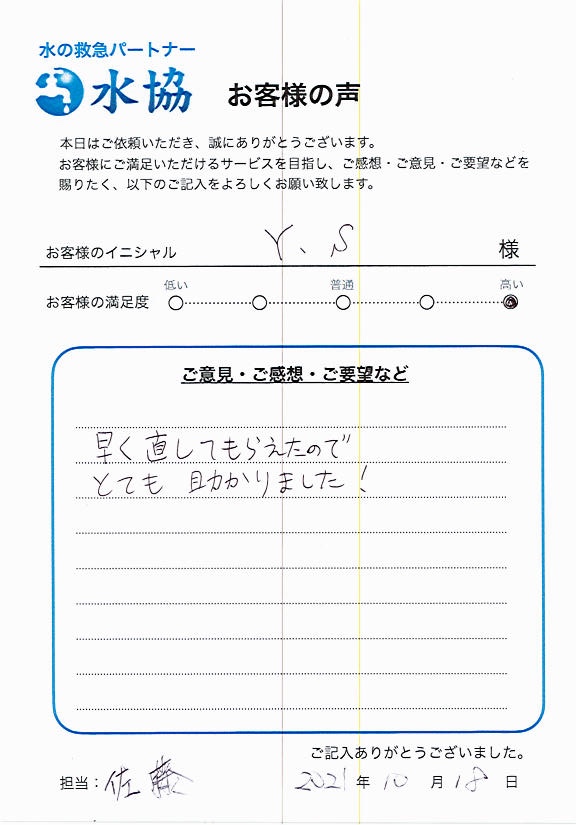 水の救急パートナー
水協 お客様の声
本日はご依頼いただき、誠にありがとうございます。
お客様にご満足いただけるサービスを目指し、ご感想・ご意見・ご要望などを
賜りたく、以下のご記入をよろしくお願い致します。
お客様のイニシャル Y、S 様
低い 普通 高い
お客様の満足度
ご意見・ご感想・ご要望など
早く直してもらえたので
とても助かりました!
ご記入ありがとうございました。
担当：佐藤 2021年10月18日